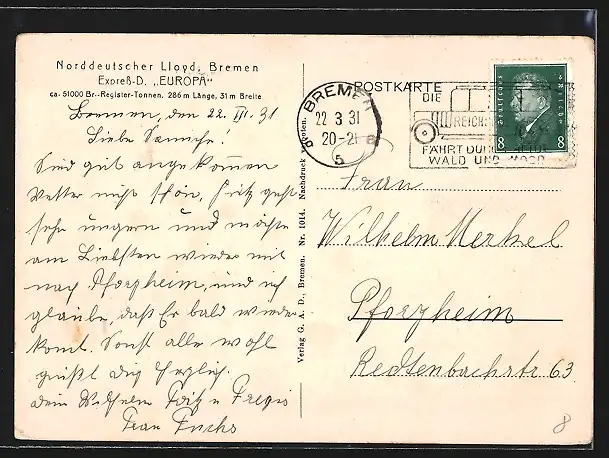 Norddeutscher Lloyd, Bremen
Expreß-D. „EUROPA"
ca. 51000 Br.-Register-Tonnen. 286 m Länge, 31 m Breite
Bremen, den 22. III. 31
Liebe
Sind gut angekommen
Wetter nicht schön, Fritz geht
sehr ungern und möchte
am Liebsten wieder mit
nach Pforzheim, und ich
glaube, daß Er bald wieder
komt. Sonst alle wohl
grüßt dich herzlich
dein Wilhelm Fritz u
Frau Fuchs
Verlag G. A. D., Bremen. Nr. 1014. Nachdruck verboten.
POSTKARTE
BREMEN
22 3 31
20-21
5
DIE
REICHS
FÄHRT DURCH HEIDE
WALD UND MOOR
Deutsches Reich
8 8
Frau
Wilhelm Merkel
Pforzheim
Redtenbachstr 63
8